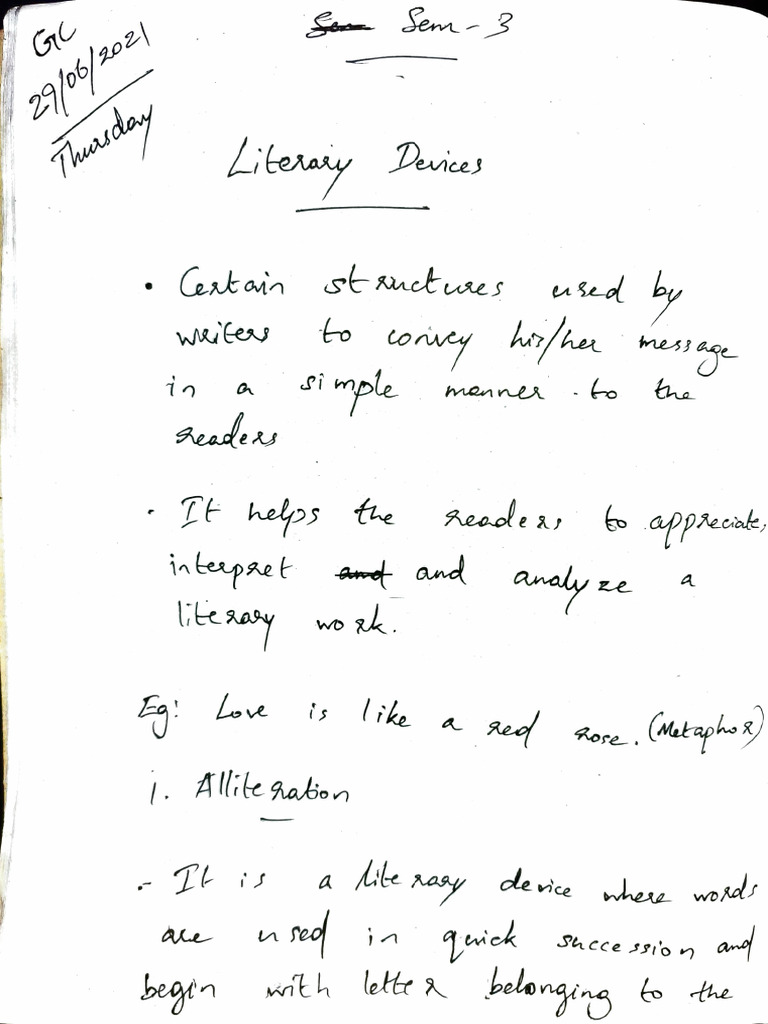 GC
29/06/2021
Thursday
Sem - 3
Literary Devices
• Certain structures used by
writers to convey his/her message
in a simple manner to the
readers
• It helps the readers to appreciate,
interpret and and analyze a
literary work.
Eg: Love is like a red rose. (Metaphor)
1. Alliteration
- It is a literary device where words
are used in quick succession and
begin with letter belonging to the